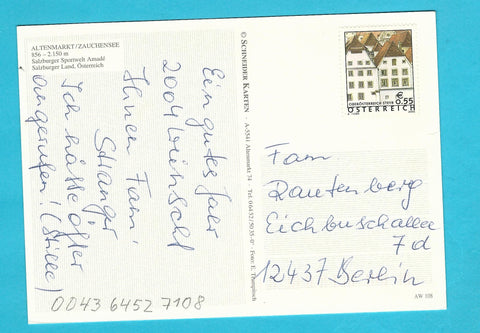 ALTENMARKT/ZAUCHENSEE
856 – 2.150 m
Salzburger Sportwelt Amadé
Salzburger Land, Österreich
Ein gutes Jahr
2004 wünscht
Ihnen Fam.
Stranger
Ich hätte öfter
angerufen! (Stille)
0043 6452 7108
© SCHNEIDER KARTEN - A-5541 Altenmarkt 74 - Tel. 06452/50 35-0 - Foto: E.
€ 0.55
OBERÖSTERREICH STEYR
ÖSTERREICH
Fam
Rautenberg
Eichbuschallee
7d
12437 Berlin
AW 108